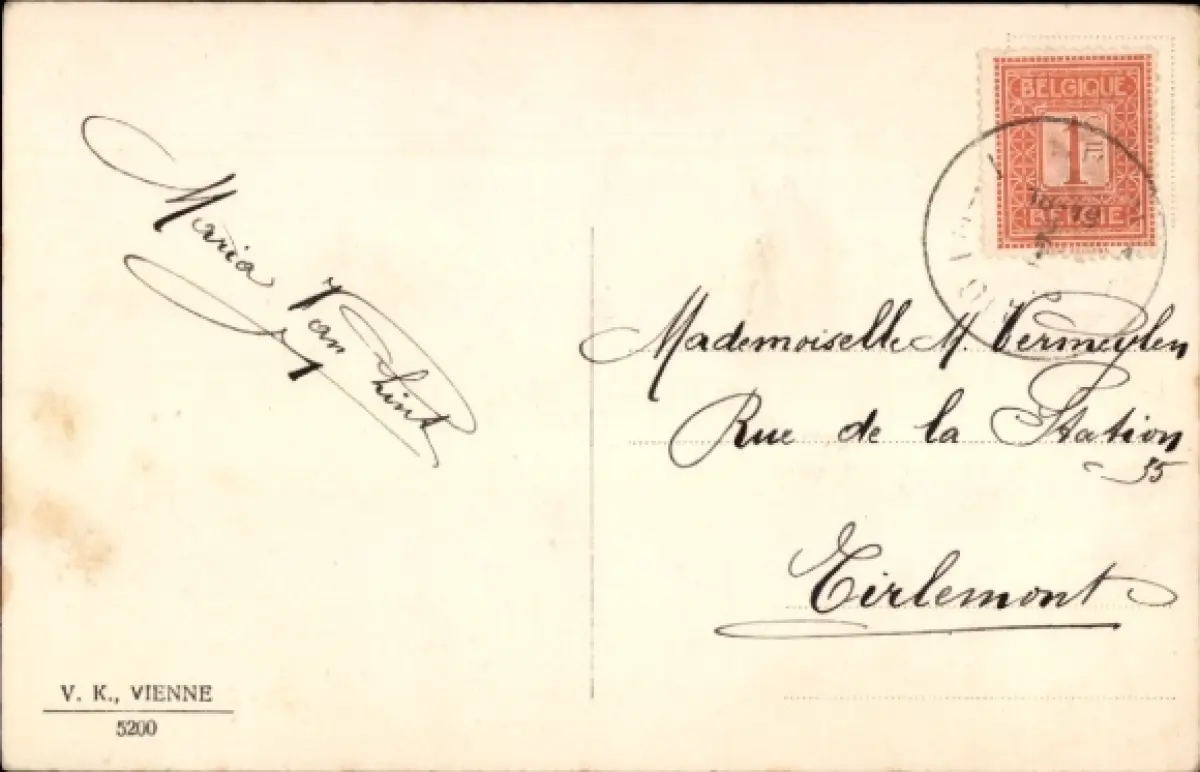 BELGIQUE
1
BELGIË
Maria
Van
Mademoiselle M. Vermeylen
Rue de la Station
55
Tirlemont
V. K., VIENNE
5200